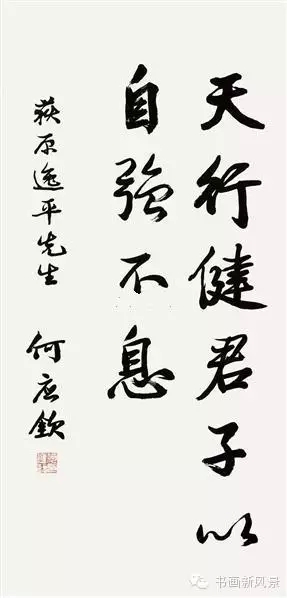 天行健君子以
自强不息
萩原逸平先生
何应钦
书画新风景